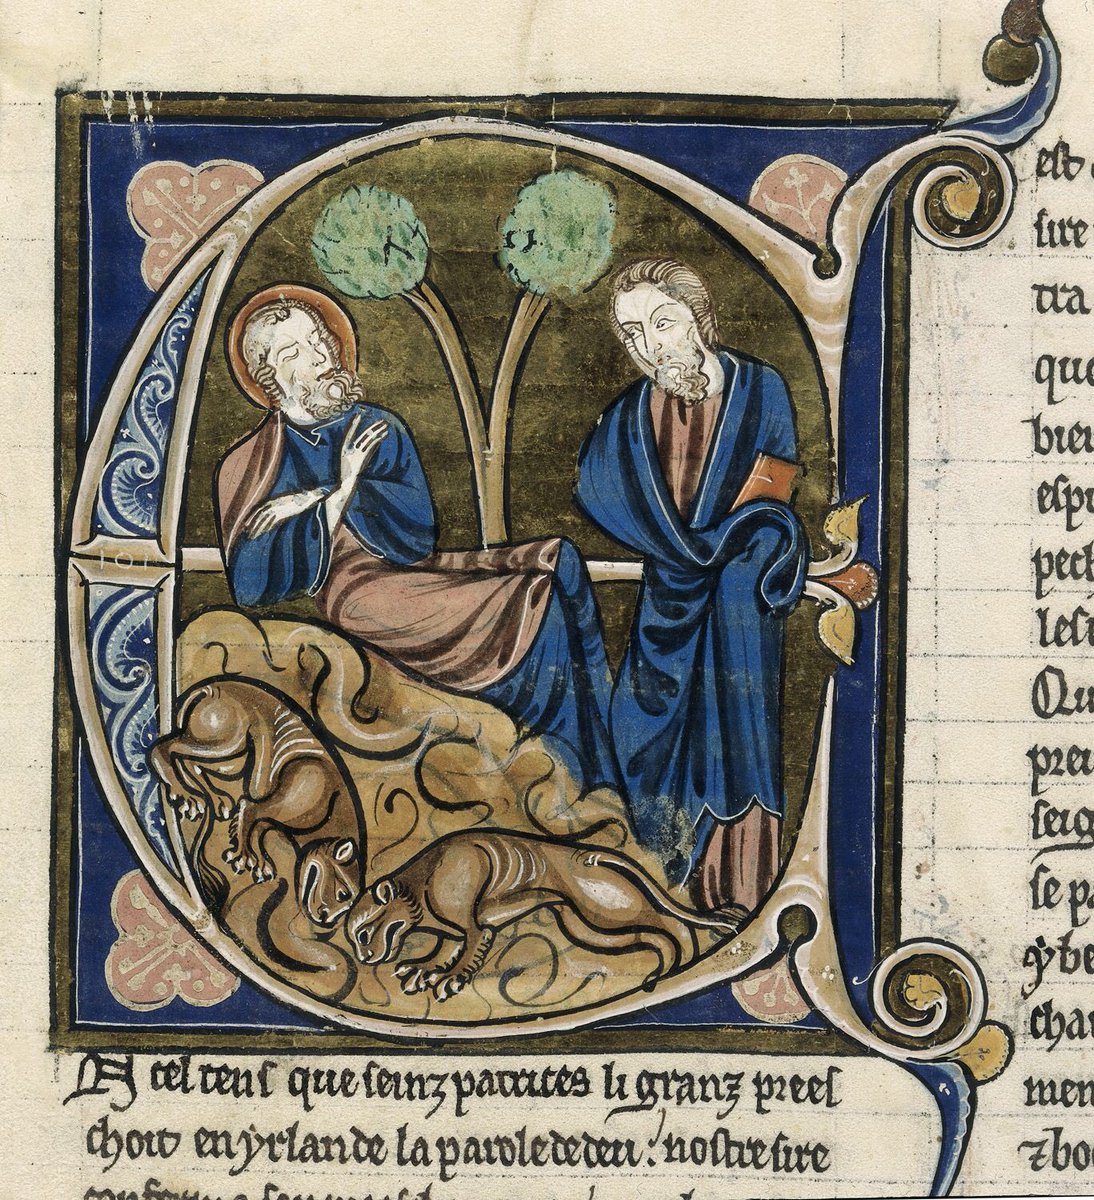 N cel tens que seinz patrices li granz prees
choit en yrlande la parole de deu. nostre sire
est
sire
tra
que
bien
esp
pech
les
Qu
pre
seig
se pa
ybe
cha
men